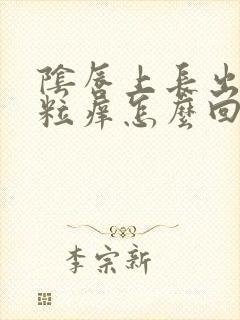 陰唇上長出
粒痒怎麼回
李宗新